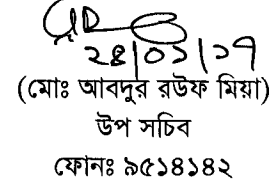 ২৪/০১/১৭
(মোঃ আবদুর রউফ মিয়া)
উপ সচিব
ফোনঃ ৯৫১৪১৪২